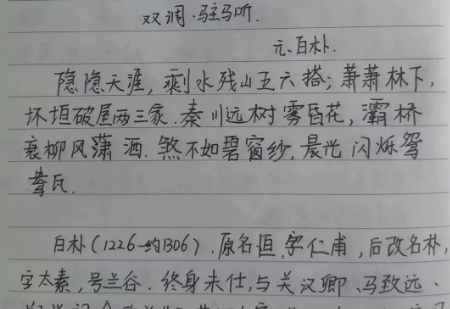 双调·驻马听.
元·白朴.
隐隐天涯,剩水残山五六搭;萧萧林下,
坏垣破屋两三家.秦川远树雾昏花,灞桥
衰柳风潇洒.煞不如碧窗纱,晨光闪烁鸳
鸯瓦.
白朴(1226-约1306).原名恒,字仁甫,后改名朴,
字太素,号兰谷.终身未仕,与关汉卿、马致远、